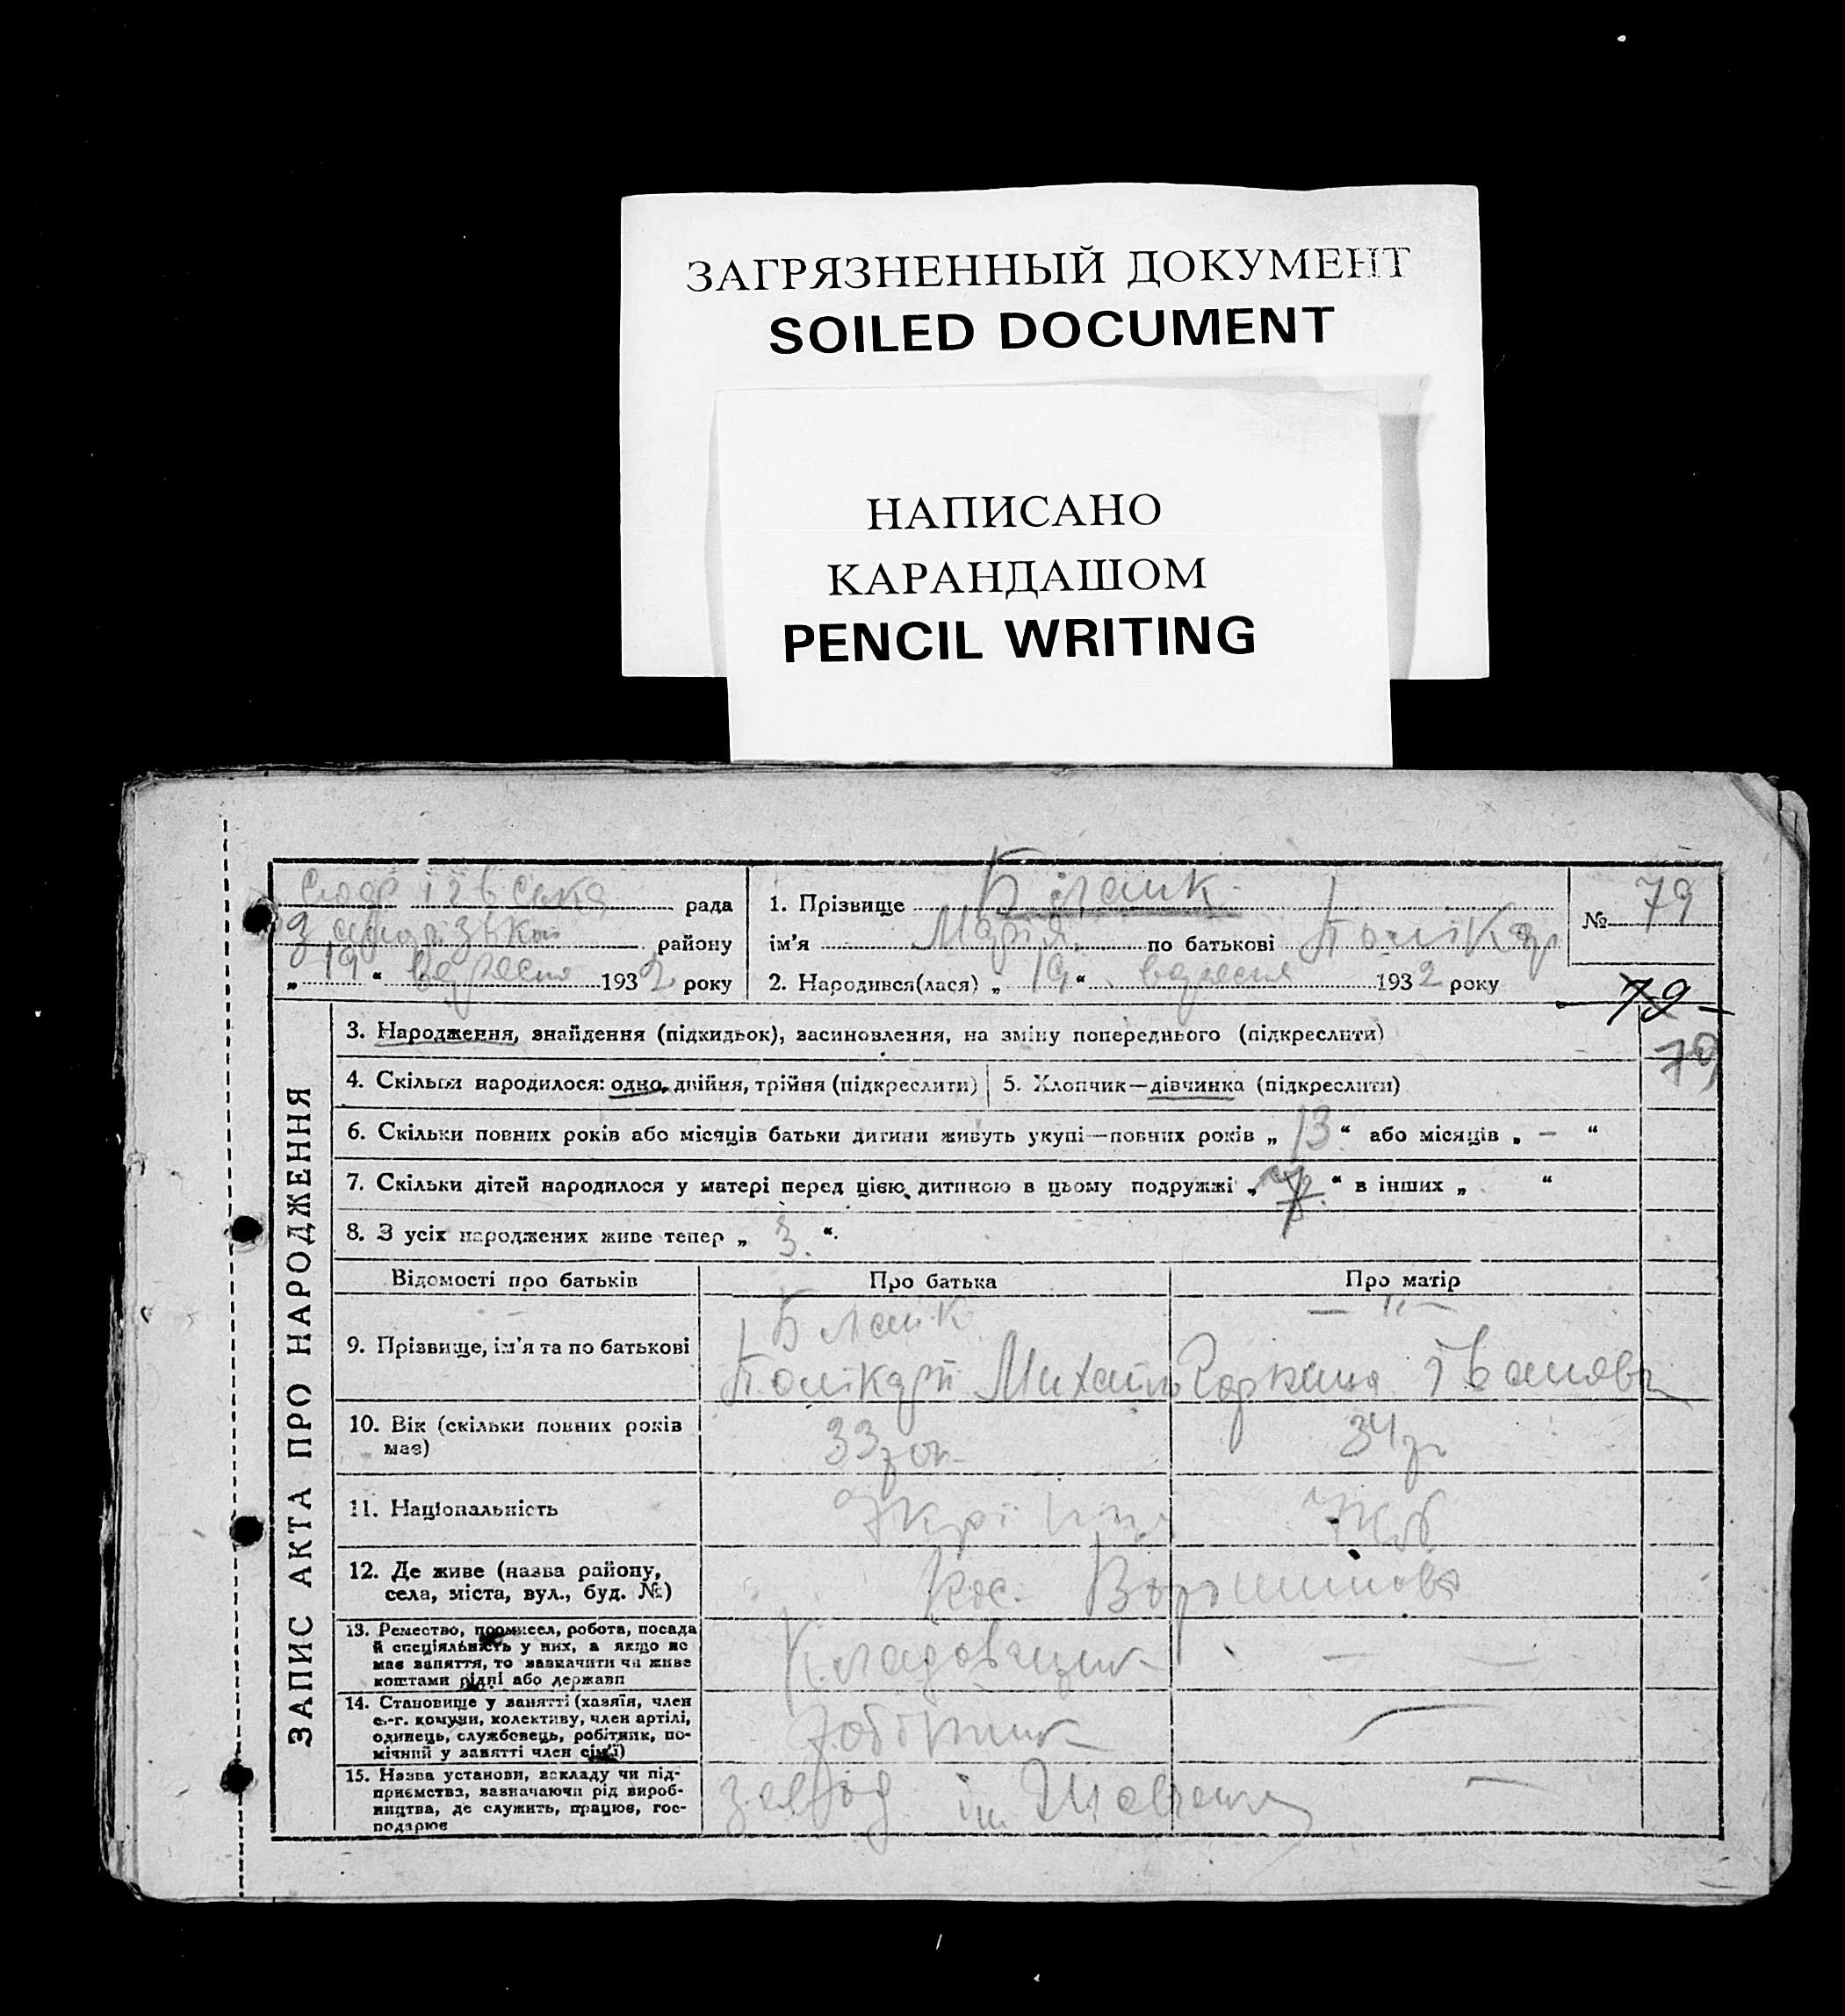 ЗАГРЯЗНЕННЫЙ ДОКУМЕНТ
SOILED DOCUMENT
НАПИСАНО
КАРАНДАШОМ
PENCIL WRITING
рада
району
„ 19 “ вересня 1932 року
1. Прізвище Білаик
ім'я Марія по батькові Полікар
2. Народився(лася) „ 19 “ вересня 1932 року
№ 79
79
79
ЗАПИС АКТА ПРО НАРОДЖЕННЯ
3. Народження, знайдення (підкидьок), засиновлення, на зміну попереднього (підкреслити)
4. Скільки народилося: одно, двійня, трійня (підкреслити)
5. Хлопчик—дівчинка (підкреслити)
6. Скільки повних років або місяців батьки дитини живуть укупі—повних років „ 13 “ або місяців „ — “
7. Скільки дітей народилося у матері перед цією дитиною в цьому подружжі „ “ в інших „ “
8. З усіх народжених живе тепер „ 3. “.
Відомості про батьків
Про батька
Про матір
9. Прізвище, ім'я та по батькові
Білаик
— " —
Полікарп Михайл
Іванов
10. Вік (скільки повних років
має)
33
34
11. Національність
12. Де живе (назва району,
села, міста, вул., буд. №)
пос. Ворошилова
13. Ремество, промисел, робота, посада
й спеціяльність у них, а якщо не
має заняття, то зазначити чи живе
коштами рідні або держави
Кладовщик
— —
14. Становище у занятті (хазяїн, член
с.-г. комуни, колективу, член артілі,
одинець, службовець, робітник, по-
мічний у занятті член сім'ї)
робітник
—
15. Назва установи, закладу чи під-
приємства, зазначаючи рід вироб-
ництва, де служить, працює, гос-
подарює
завод ім Шевченка
—